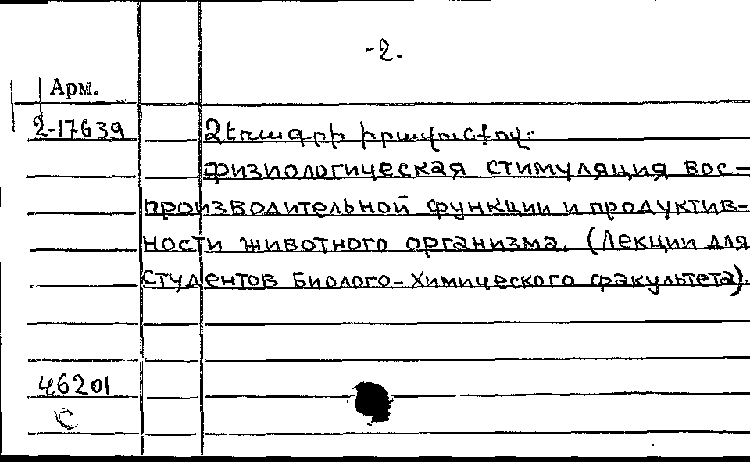 -2.
Арм.
2-17639
Ձեռագրի իրավունքով.
физиологическая стимуляция вос-
производительной функции и продуктив-
ности животного организма. (Лекции для
студентов Биолого-Химического факультета).
46201
С